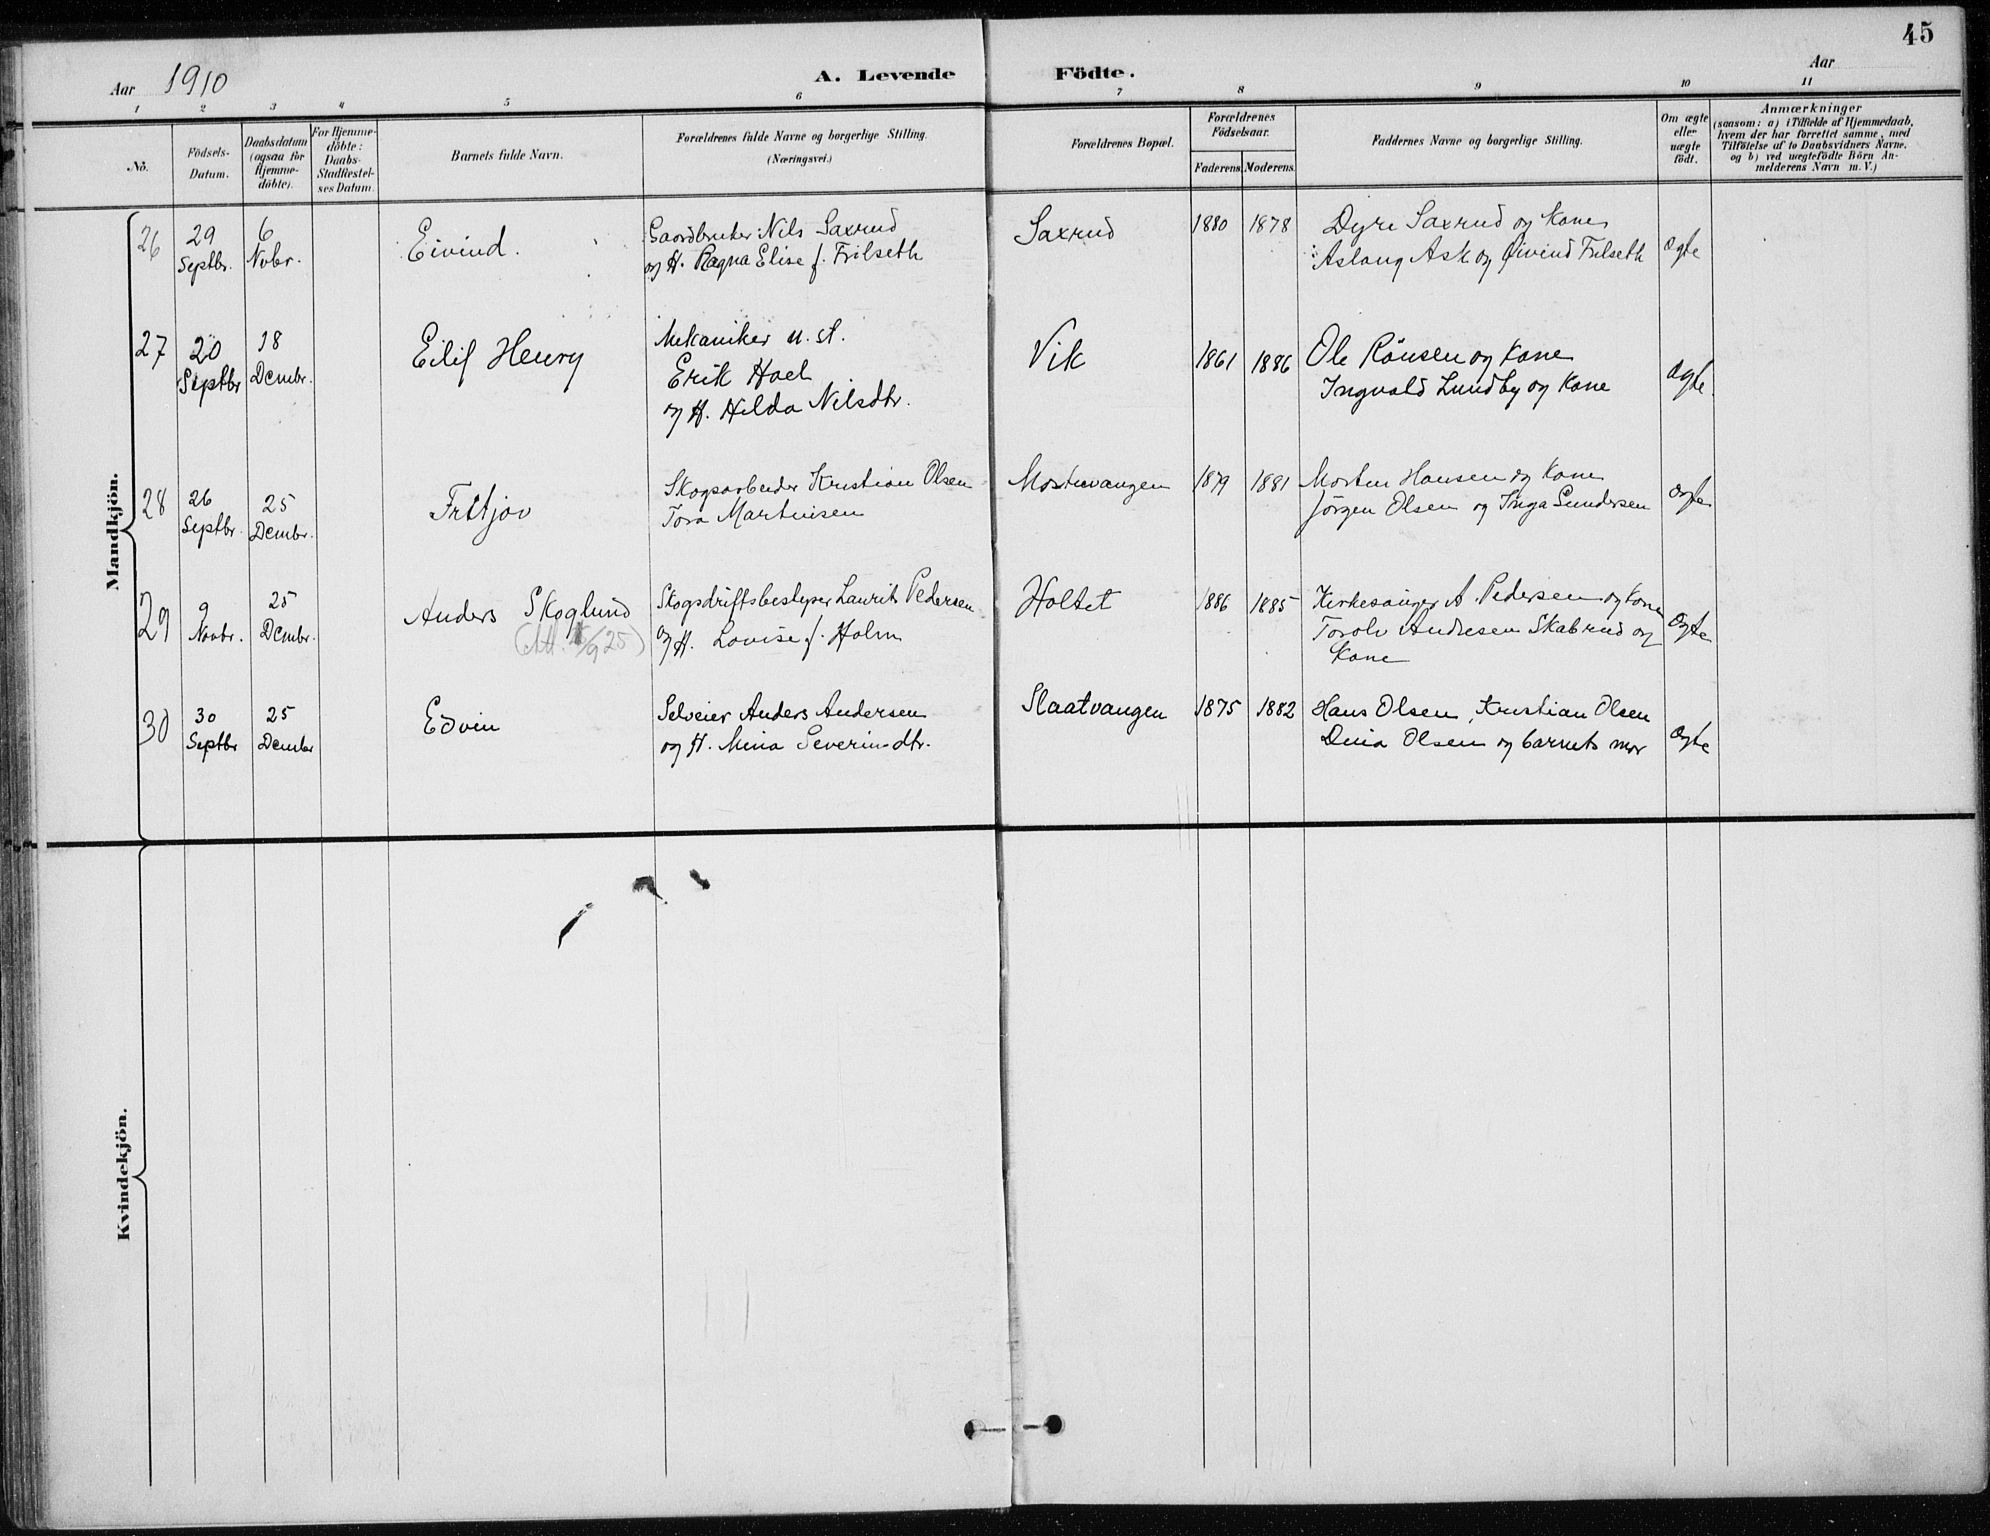 45
Aar 1910
A. Levende Födte.
Aar
1 2 3 4 5 6 7 8 9 10 11
No.
Födsels-Datum.
Daabsdatum (ogsaa for Hjemme-döbte).
For Hjemme-döbte: Daabs-Stadfæstel-ses Datum.
Barnets fulde Navn.
Forældrenes fulde Navne og borgerlige Stilling.
(Næringsvei.)
Forældrenes Bopæl.
Forældrenes Födselsaar.
Faderens. Moderens.
Faddernes Navne og borgerlige Stilling.
Om ægte eller uægte födt.
Anmærkninger
(saasom: a) i Tilfælde af Hjemmedaab,
hvem der har forrettet samme, med
Tilföielse af to Daabsvidners Navne,
og b) ved uægtefödte Börn An-
melderens Navn m. V.)
Mandkjön.
26 29 6 Eivind. Gaardbruker Nils Saxrud Saxrud 1880 1878 Dyre Saxrud og Kone
Septbr. Nobr. og H. Ragna Elise f. Frilseth Aslaug Ask og Öivind Frilseth ægte
27 20 18 Eilif Henry Mekaniker u. st. Vik 1861 1886 Ole Rönsen og Kone
Septbr Dcmbr. Erik Hoel Ingvald Lundby og Kone ægte.
og H. Hilda Nilsdtr.
28 26 25 Fritjov Skogsarbeider Kristian Olsen Mostuevangen 1879 1881 Morten Hansen og Kone
Septbr. Dcmbr. Tora Martinsen Jörgen Olsen og Inga Gundersen ægte
29 9 25 Anders Skoglund Skogsdriftsbestyrer Laurits Pedersen Holtet 1886 1885 Kirkesanger A. Pedersen og Kone
Novbr. Dcmbr. og H. Lovise f. Holm Torolv Andresen Skabrud og ægte
Kone
30 30 25 Edvin Selveier Anders Andersen Slaatvangen 1875 1882 Hans Olsen, Kristian Olsen
Septbr Dcmbr og H. Mina Severinsdtr. Dina Olsen og barnets mor ægte
Kvindekjön.